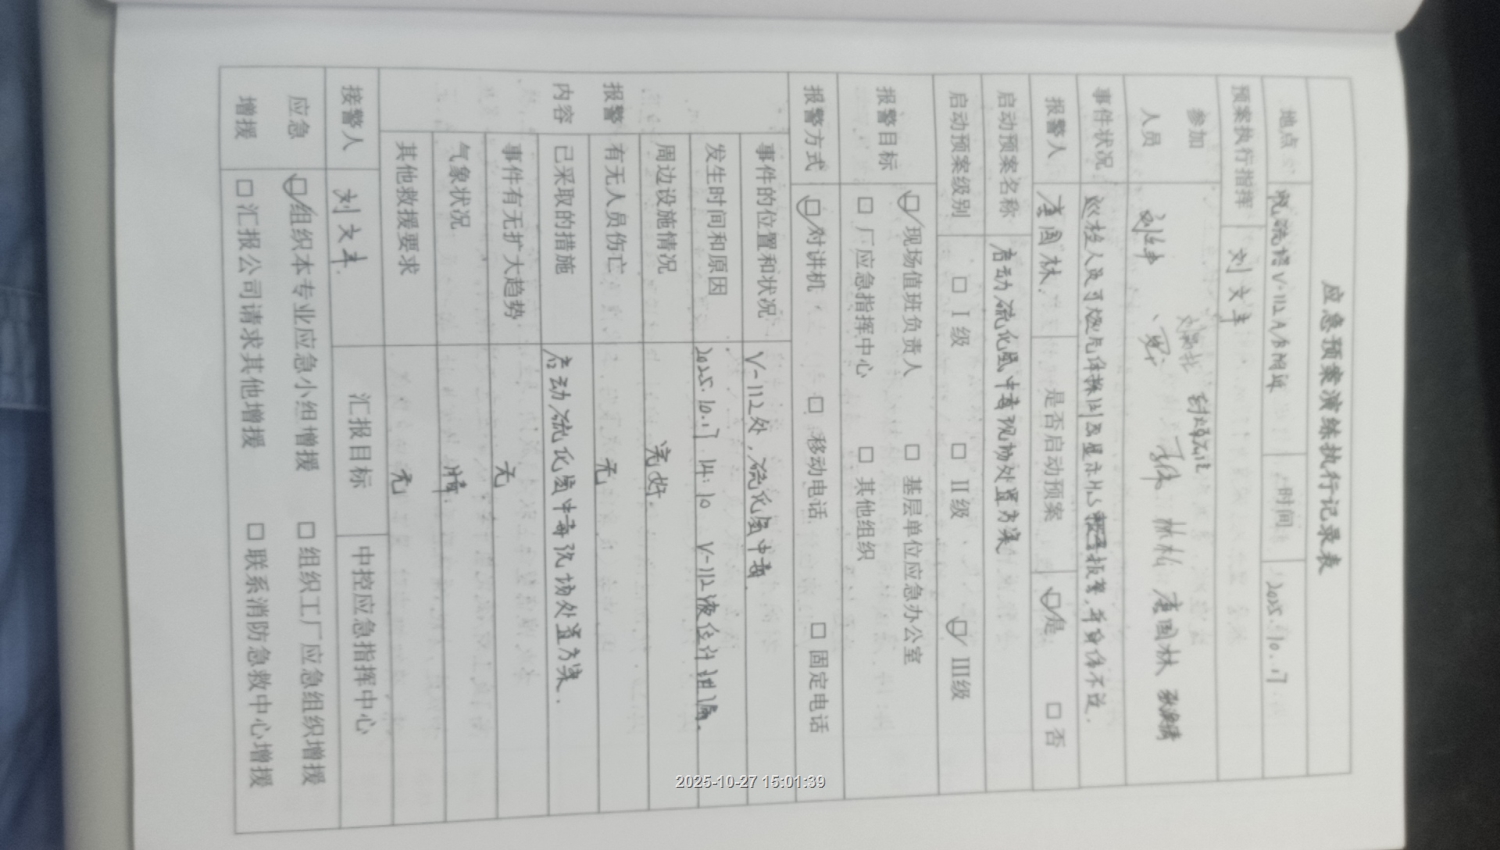 应急预案演练执行记录表
地点 脱硫塔V-112A/B附近 时间 2025.10.17
预案执行指挥 刘文丰
参加人员 唐国林
事件状况 巡检人员可燃气体探测仪显示H₂S 报警,并身体不适.
报警人 唐国林. 是否启动预案 ☑是 □否
启动预案名称 启动硫化氢中毒现场处置方案
启动预案级别 □ I级 □ II级 ☑ III级
报警目标 ☑现场值班负责人 □ 基层单位应急办公室
□ 厂应急指挥中心 □ 其他组织
报警方式 ☑对讲机 □ 移动电话 □ 固定电话
报警内容 事件的位置和状况 V-112处,硫化氢中毒.
发生时间和原因 2025.10.17 14:10 V-112液位计泄漏.
周边设施情况 完好.
有无人员伤亡 无
已采取的措施 启动硫化氢中毒现场处置方案.
事件有无扩大趋势 无
气象状况 晴
其他救援要求 无
接警人 刘文丰. 汇报目标 中控应急指挥中心
应急增援 ☑组织本专业应急小组增援 □ 组织工厂应急组织增援
□ 汇报公司请求其他增援 □ 联系消防急救中心增援
2025-10-27 15:01:39